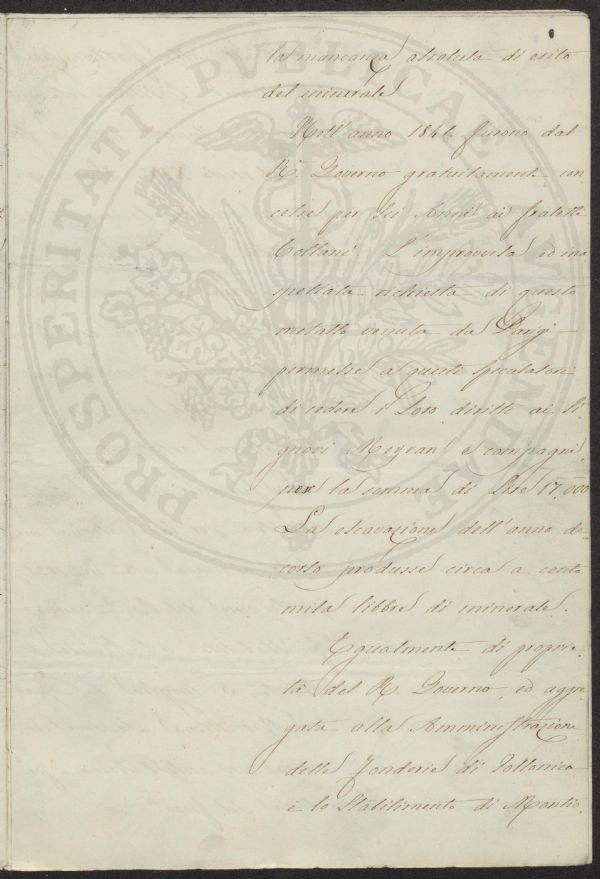 la mancanza assoluta di esito
del minerale
Nell'anno 184 furono dal
R. Governo gratuitamente con
cesse per sei Anni ai fratelli
L'improvvisa ed ina
spettata richiesta di questo
metallo venuta da Parigi
permesse a questi speculatori
di cedere i Loro diritti ai Si
gnori Meyran e compagni
per la somma di Lire 17.000
La escavazione dell'anno de
corso produsse circa a cento
mila libbre di minerale.
Egualmente di proprie
tà del R. Governo, ed aggre
gata alla Amministrazione
delle Fonderie di Follonica
è lo Stabilimento di Montio
PROSPERITATI PUBLICAE AUGENDAE